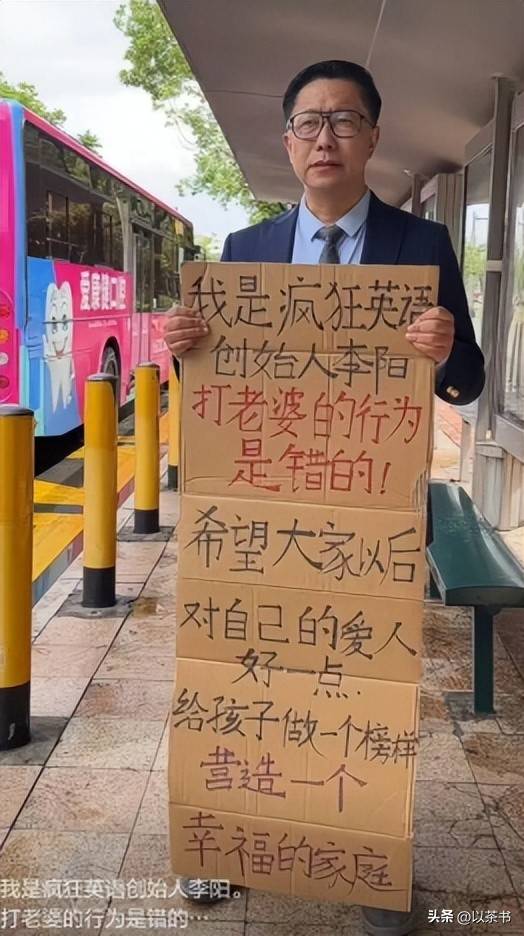 爱康健口腔
我是疯狂英语
创始人李阳
打老婆的行为
是错的!
希望大家以后
对自己的爱人
好一点.
给孩子做一个榜样
营造一个
幸福的家庭
我是疯狂英语创始人李阳。
打老婆的行为是错的…
头条 @以茶书